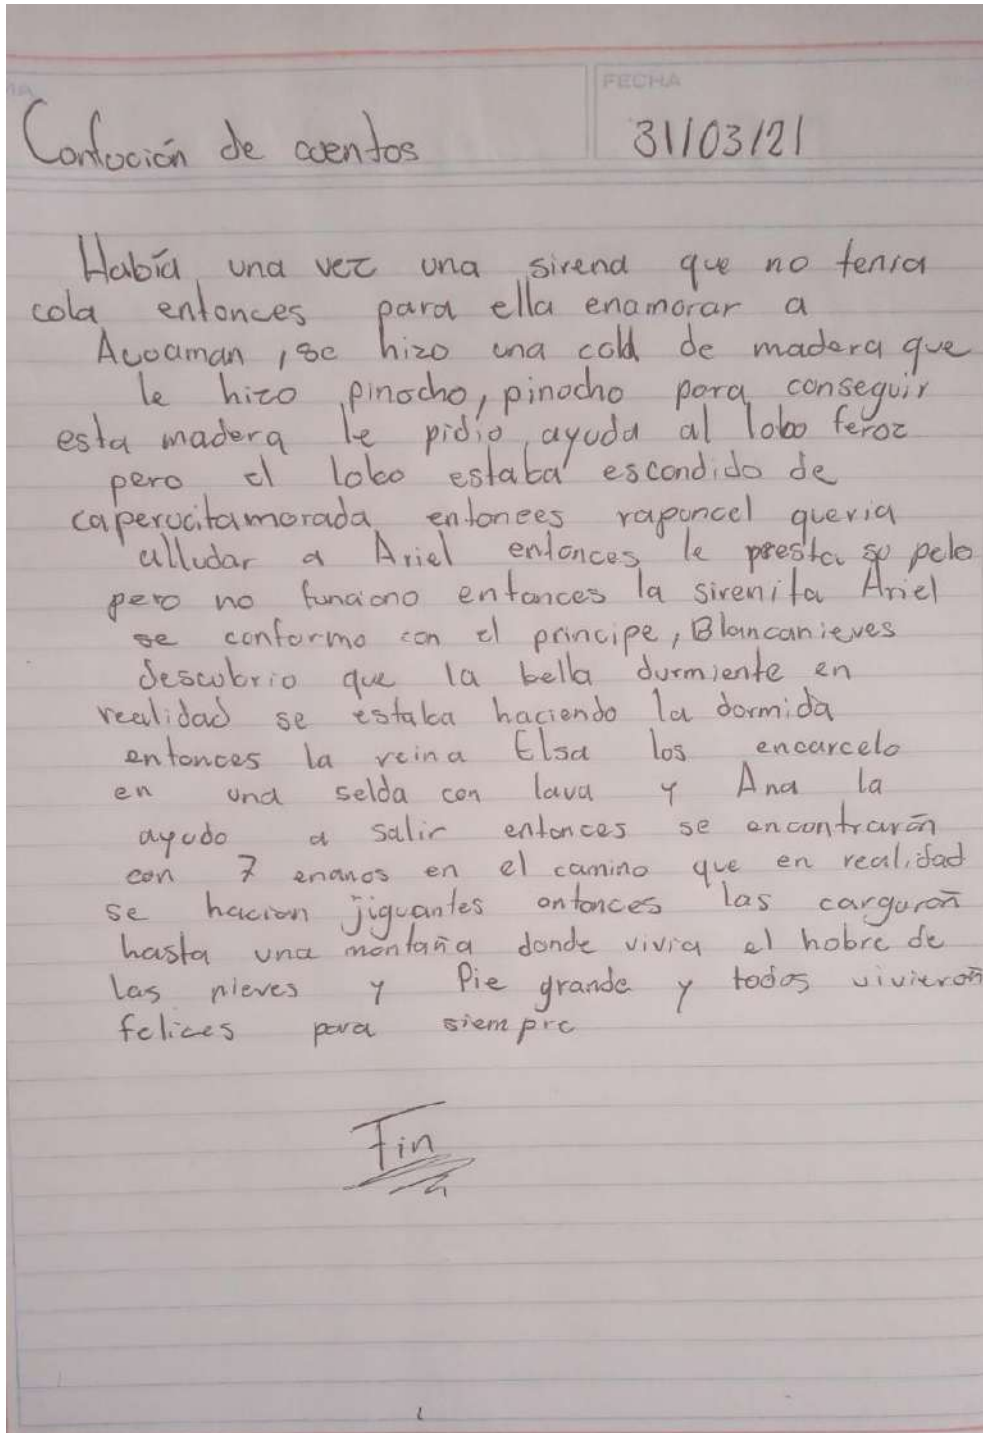 FECHA
Confución de cuentos 31/03/21
Había una vez una sirena que no tenia
cola entonces para ella enamorar a
Acuaman, se hizo una cola de madera que
le hizo pinocho, pinocho para conseguir
esta madera le pidio ayuda al lobo feroz
pero el lobo estaba escondido de
caperucitamorada entonces rapuncel queria
alludar a Ariel entonces le presta su pelo
pero no funciono entonces la sirenita Ariel
se conformo con el principe, Blancanieves
descubrio que la bella durmiente en
realidad se estaba haciendo la dormida
entonces la reina Elsa los encarcelo
en una selda con lava y Ana la
ayudo a salir entonces se encontrarón
con 7 enanos en el camino que en realidad
se hacion jiguantes entonces las cargarón
hasta una montaña donde vivia el hobre de
las nieves y Pie grande y todos vivierón
felices para siempre
Fin